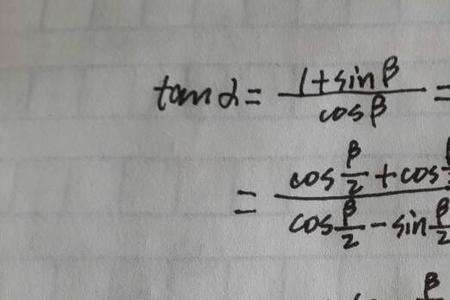 tan α = (1 + sin β)/(cos β) =
= (cos β/2 + cos)/(cos β/2 - sin β/2)
β